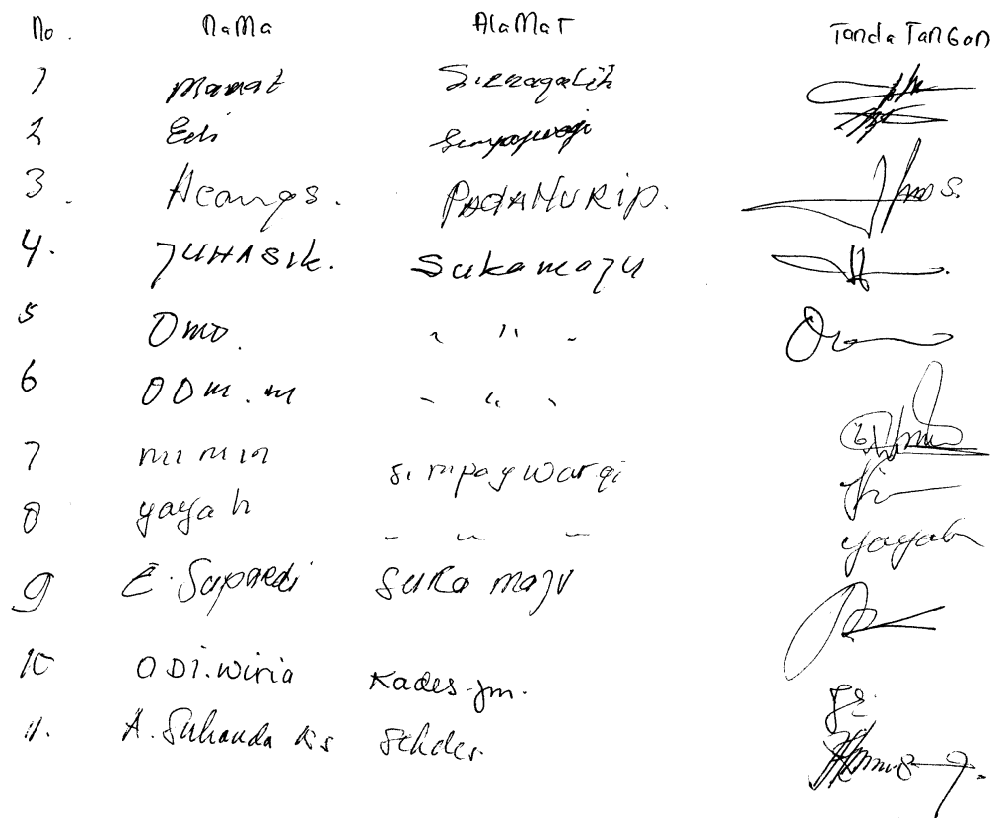 No. NaMa AlaMaT Tanda TanGan
1 Mamat Sirnagalih
2 Edi
3 Acang s. PADAHURIP.
4. JUHASIK. Sukamaju
5 Omo. " " "
6 ODM.M " " "
7 mimin simpay wargi
8 yayah " " " yayah
9 E. Supardi Suka maju
10 ODI.Wiria Kades jm.
11. A. Suhanda Ks Sekdes.